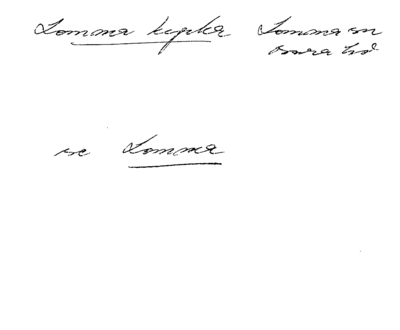 Lomma kyrka Lomma sn
Bara hd
se Lomma